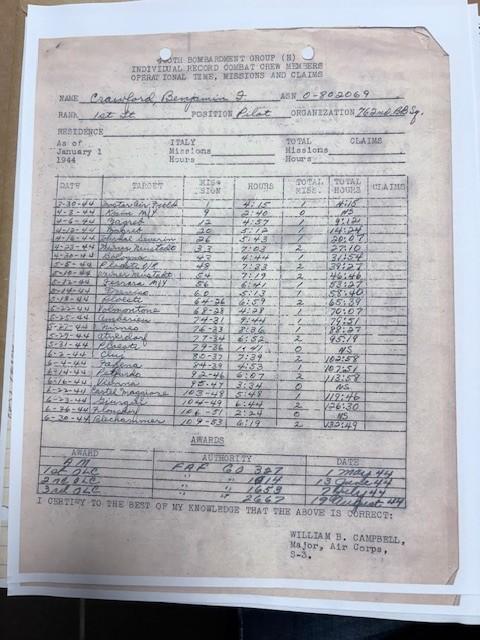 460TH BOMBARDMENT GROUP (H)
INDIVIDUAL RECORD COMBAT CREW MEMBERS
OPERATIONAL TIME, MISSIONS AND CLAIMS
NAME Crawford, Benjamin F ASN 0-802069
RANK 1st Lt POSITION Pilot ORGANIZATION 762nd BB Sq.
RESIDENCE
As of ITALY TOTAL CLAIMS
January 1 Missions Missions
1944 Hours Hours
DATE TARGET MIS-SION HOURS TOTAL MISS. TOTAL HOURS CLAIMS
3-30-44 1 4:15 1 4:15
4-3-44 M/Y 9 2:40 0 NS
4-6-44 Zagreb 12 4:57 1 9:12
4-12-44 Zagreb 20 5:12 1 14:24
4-16-44 Severin 26 5:43 1 20:07
4-23-44 Neustadt 33 7:03 2 27:10
4-30-44 43 4:44 1 31:54
5-5-44 Ploesti 48 7:33 2 39:27
5-10-44 Neustadt 54 7:19 2 46:46
5-12-44 Ferrara M/Y 56 6:41 1 53:27
5-14-44 60 5:13 1 58:40
5-18-44 Ploesti 64-26 6:59 2 65:39
5-22-44 Valmontone 68-28 4:28 1 70:07
5-25-44 74-31 1
5-27-44 76-33 1
5-29-44 77-34 6:52 2 95:19
5-31-44 Ploesti 79-36 0 NS
6-2-44 Cluj 80-37 7:39 2 102:58
6-4-44 84-39 4:53 1 107:51
6-14-44 92-46 6:07 2 113:58
6-16-44 Vienna 95-47 3:34 0 NS
6-22-44 Castel Maggiore 103-48 5:48 1 119:46
6-23-44 Giurgiu 104-49 6:44 2 126:30
6-26-44 106-51 2:24 0 NS
6-30-44 Blechhammer 109-53 6:19 2 132:49
AWARDS
AWARD AUTHORITY DATE
A M FAF GO 327 1 May 44
1st OLC " " 1014 13 June 44
2nd OLC " " 1653 7 July 44
3rd OLC " " 2667 19 August 44
I CERTIFY TO THE BEST OF MY KNOWLEDGE THAT THE ABOVE IS CORRECT:
WILLIAM B. CAMPBELL,
Major, Air Corps,
S-3.